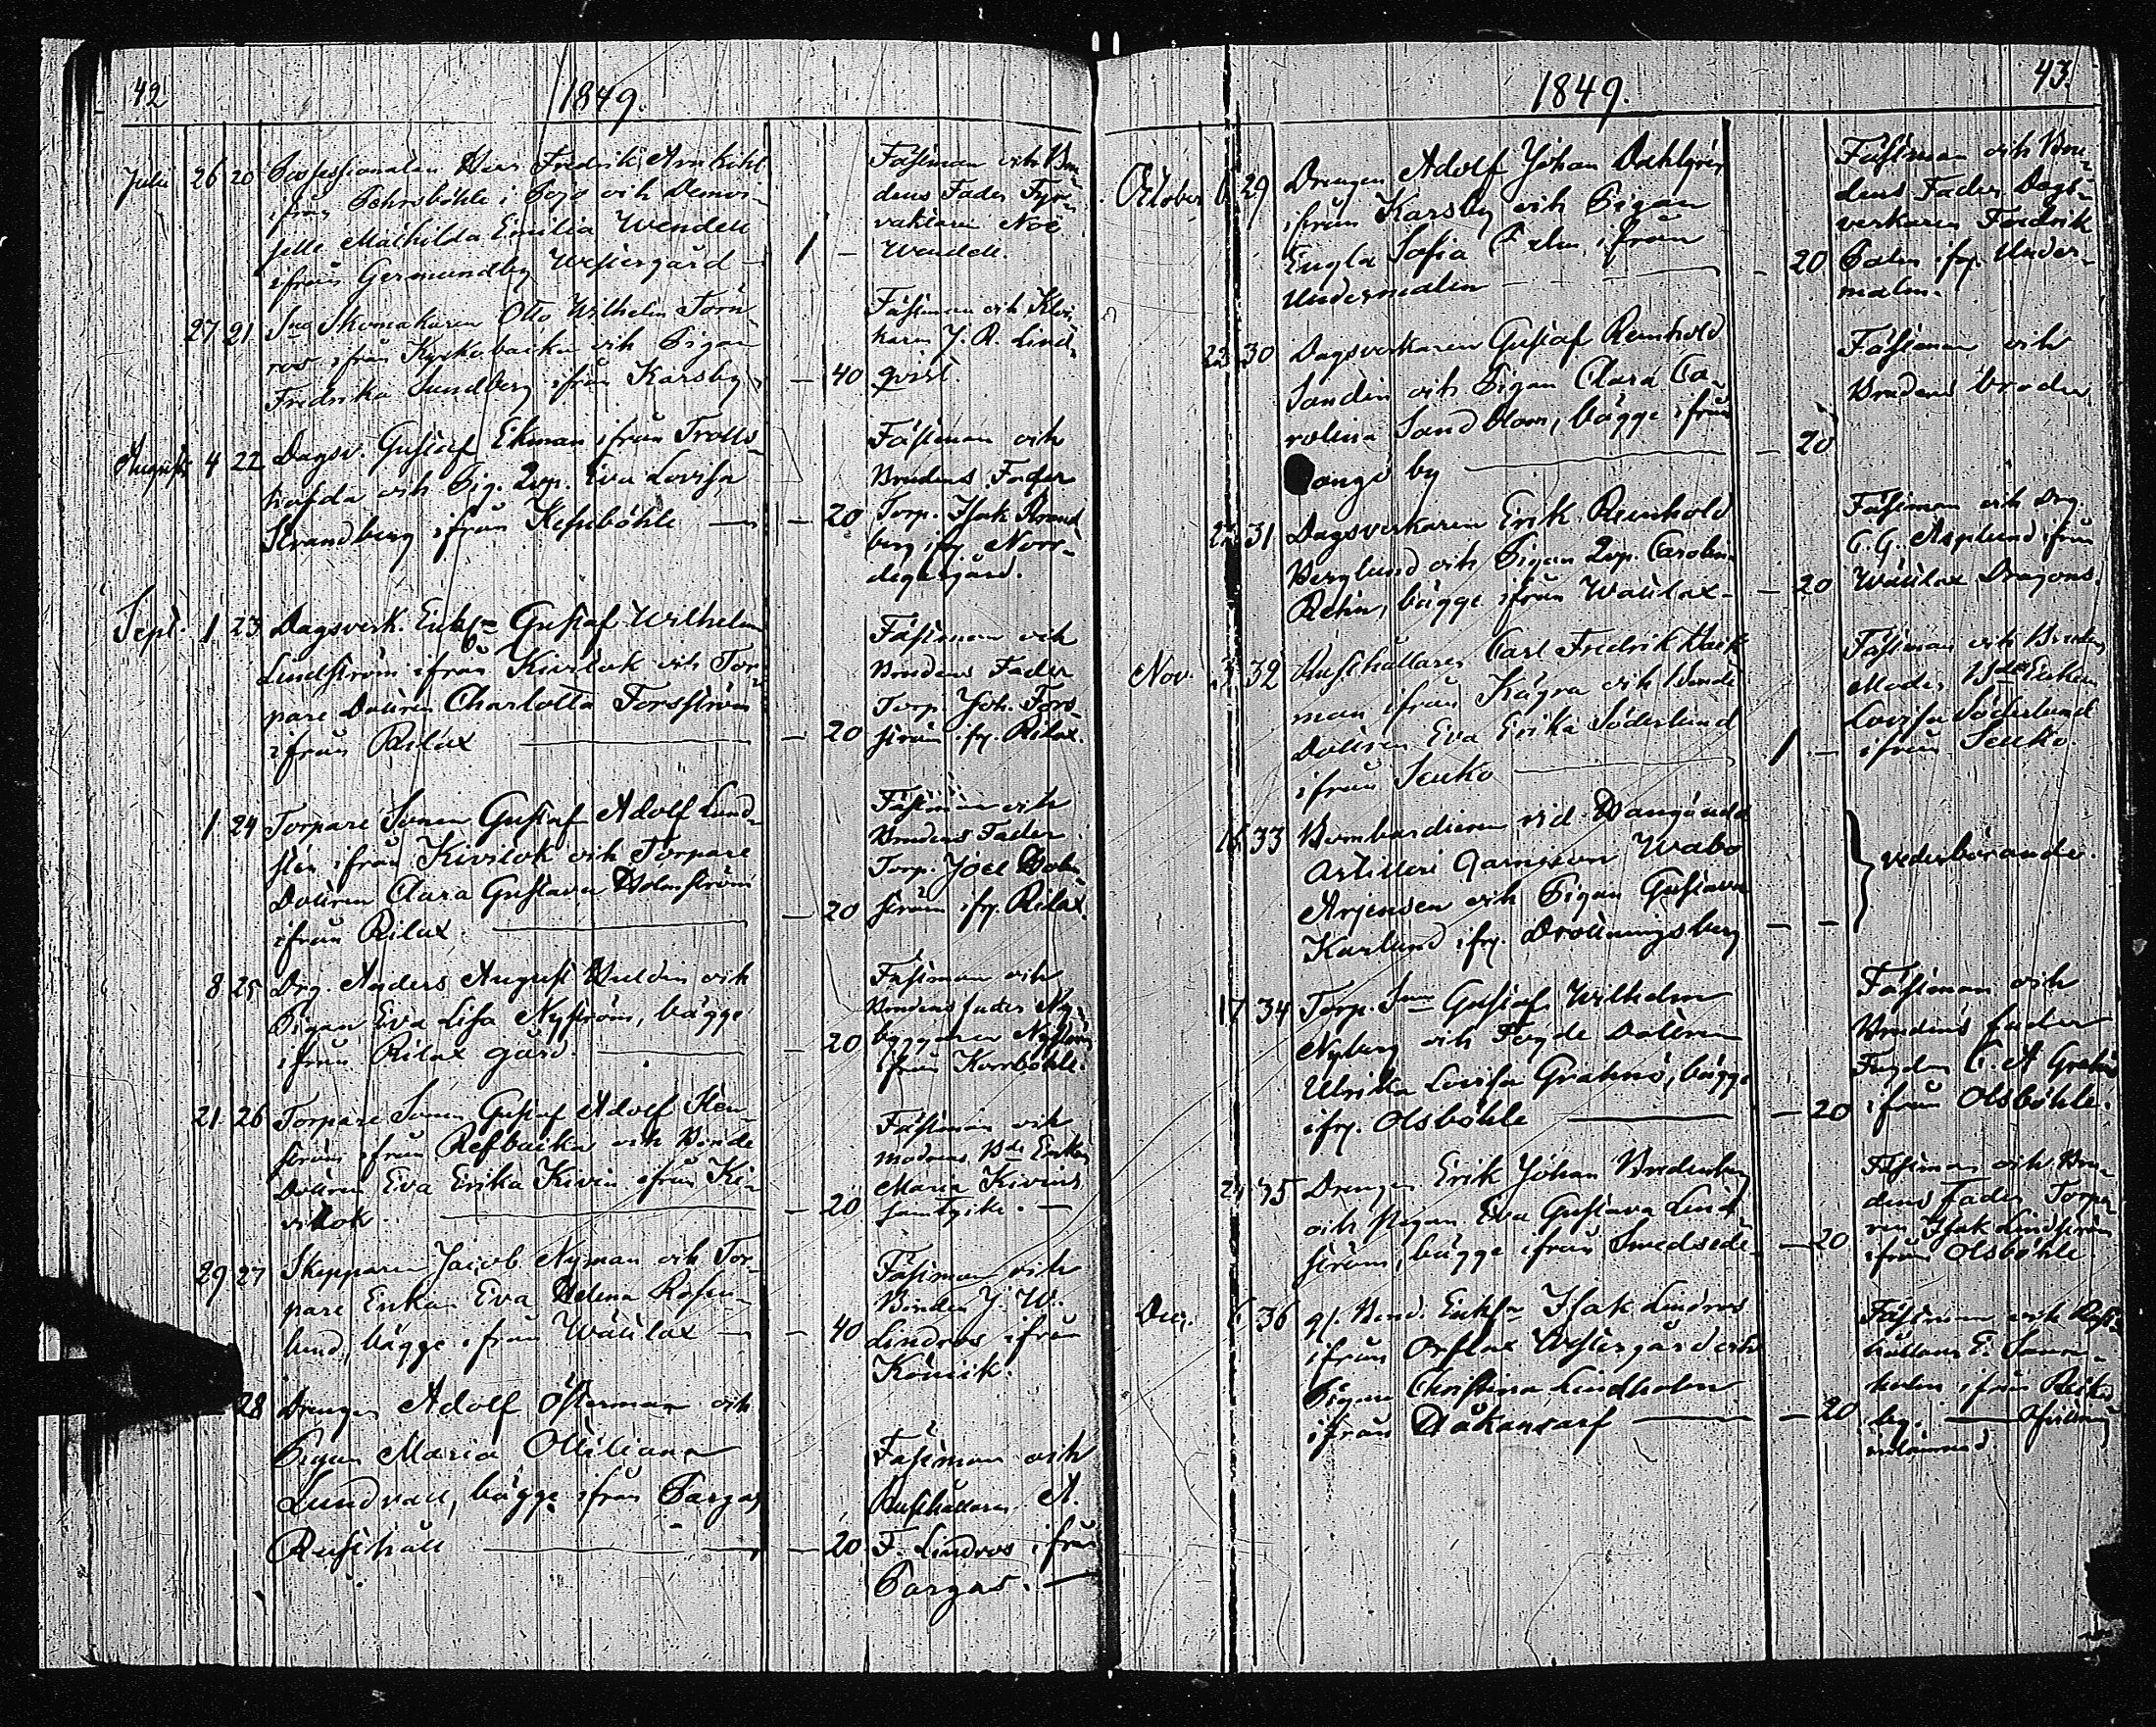 42
1849.
Julii 26 20 Herr Fredrik
ifrån i Pojo och Demoi-
selle Mathilda Emilia Wendell
ifrån Germundby Westergård — 1 —
Fästman och Bru-
dens Fader Fyr-
vaktaren Noë
Wendell.
27 21 Skomakaren Otto Wilhelm Törn-
ros ifrån Kyrkobacka och Pigan
Fredrika Sundberg ifrån Karsby — 40
Fästman och Kloc-
karen J. R. Lind-
qvist.
Augusti 4 22 Dagsv. Gustaf Ekman ifrån Trolls-
och Pig. Eva Lovisa
Strandberg ifrån — 20
Fästman och
Brudens Fader
Torp. Isak Strand-
berg ifr. Norr-
degergård.
Sept. 1 23 Dagsverk. Enkl. Gustaf Wilhelm
Lindström ifrån Kivitok och Tor-
pare Dottren Charlotta Forsström
ifrån Rilax — 20
Fästman och
Brudens Fader
Torp. Joh. Fors-
ström ifr. Rilax.
1 24 Torpare Sonen Gustaf Adolf Lund-
stén ifrån Kivitok och Torpare
Dottren Clara Gustava Holmström
ifrån Rilax. — 20
Fästman och
Brudens Fader
Torp. Joel Holm-
ström ifr. Rilax.
8 25 Drg. Anders August Huldin och
Pigan Eva Lisa Nyström, bägge
ifrån Rilax gård. — 20
Fästman och
Brudens fader Ny-
byggaren Nyström
ifrån Korrböhle.
21 26 Torpare Sonen Gustaf Adolf
ström ifrån Refbacka och Bonde
Dottren Eva Erika Kivin ifrån Ki-
vitok. — 20
Fästman och
modren Enkan
Maria Kivins
samtycke. —
29 27 Skepparen Jacob Nyman och Tor-
pare Enkan Eva Helena Rosen-
lund, bägge ifrån Wättlax — 40
Fästman och
Bonden J. W.
Lindros ifrån
28 Drengen Adolf Österman och
Pigan Maria Ottiliana
Lundvall, bägge ifrån Pargas
Rusthåll — 20
Fästman och
Rusthållaren A.
F. Lindros ifrån
Pargas. —
43.
1849.
October 6 29 Drengen Adolf Johan Dahlqvist
ifrån Karsby och Pigan
Engla Sofia Palm ifrån
Undermalm — 20
Fästman och Bru-
dens Fader Dags-
verkaren Fredrik
Palm ifr. Under-
malm.
30 Dagsverkaren Gustaf Reinhold
Sandin och Pigan Clara Ca-
rolina Sandblom, bägge ifrån
by — 20
Fästman och
Brudens broder
31 Dagsverkaren Erik Reinhold
Berglund och Pigan Carolina
Rehn, bägge ifrån Wättlax — 20
Fästman och Drg
C. G. Asplund ifrån
Wättlax Dragons.
Nov. 3 32 Rusthållaren Carl Fredrik
man ifrån Kägra och Bonde
Dottren Eva Erika Söderlund
ifrån Seuko — 1 —
Fästman och Brudens
Moder Enkan
Lovisa Söderlund
ifrån Seuko.
33 Bombardieren vid Hangöudd
Artilleri Garnison Wabo
Arjensen och Pigan Gustava
Karlund ifr. Drottningsberg — —
vederbörande.
17 34 Torp. Gustaf Wilhelm
Nyberg och Fogde Dottren
Ulrika Lovisa Grahnö, bägge
ifr. Olsböhle — 20
Fästman och
Brudens fader
Fogden C. A. Grahnö
ifrån Olsböhle.
24 35 Drengen Erik Johan Bredenberg
och Pigan Eva Gustava Lind-
ström, bägge ifrån Smedsede — 20
Fästman och Bru-
dens Fader Torpa-
ren Isak Lindström
ifrån Olsböhle.
Dec. 6 36 Isak Lindros
ifrån Orslax Westergård och
Pigan Christina Lindholm
ifrån Håkansarf — 20
Fästman och Rust-
hållaren E.
ifrån
by. —
inlämnad.